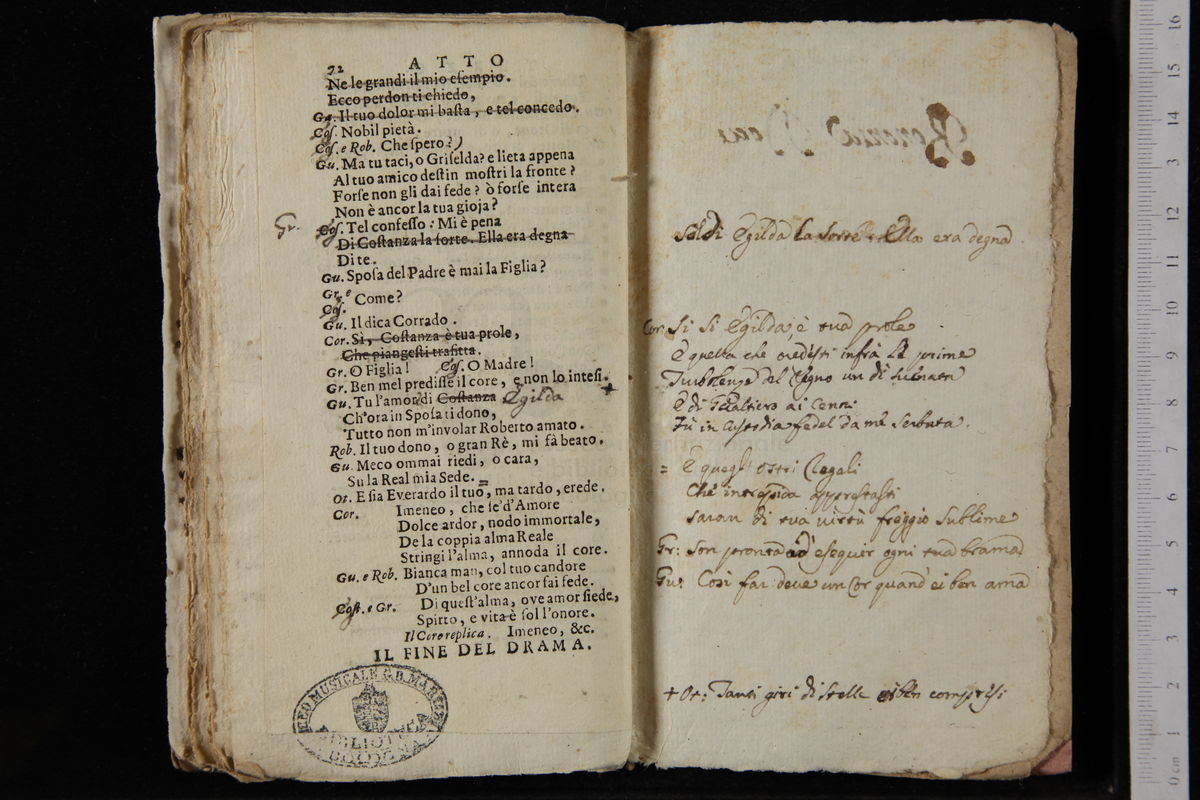 72 ATTO
Ne le grandi il mio esempio.
Ecco perdon ti chiedo,
Gu. Il tuo dolor mi basta, e tel concedo.
Cos. Nobil pietà.
Cos. e Rob. Che spero?)
Gu. Ma tu taci, o Griselda? e lieta appena
Al tuo amico destin mostri la fronte?
Forse non gli dai fede? ò forse intera
Non è ancor la tua gioja?
Gr. Cos. Tel confesso: Mi è pena
Di Costanza la sorte. Ella era degna
Di te.
Gu. Sposa del Padre è mai la Figlia?
Gr. e
Cos. Come?
Gu. Il dica Corrado.
Cor. Sì, Costanza è tua prole,
Che piangesti trafitta.
Gr. O Figlia! Cos. O Madre!
Gr. Ben mel predisse il core, e non lo intesi. +
Gu. Tu l'amor di Costanza Egilda
Ch'ora in Sposa ti dono,
Tutto non m'involar Roberto amato.
Rob. Il tuo dono, o gran Rè, mi fà beato.
Gu. Meco ommai riedi, o cara,
Su la Real mia Sede. =
Ot. E sia Everardo il tuo, ma tardo, erede.
Cor. Imeneo, che se'd'Amore
Dolce ardor, nodo immortale,
De la coppia alma Reale
Stringi l'alma, annoda il core.
Gu. e Rob. Bianca man, col tuo candore
D'un bel core ancor fai fede.
Cost. e Gr. Di quest'alma, ove amor siede,
Spitto, e vita è sol l'onore.
Il Coro replica. Imeneo, &c.
IL FINE DEL DRAMA.
LICEO MUSICALE G. B. MARTINI
BIBLIOTECA
BOLOGNA
Egilda la sorte. Ella era degna
Cor. Si si Egilda, è tua prole
E quella che credesti infrà le prime
Turbolenze del Regno un dì svenata
E di Gualtiero ai Cenni
Fù in Custodia fedel da me serbata.
= E quegl' ostri Regali
Che intrepida apprestasti
saran di tua virtù freggio sublime
Gr: son pronta ad' eseguir ogni tua brama
Gu: Così far deve un Cor quand' ei ben ama
+ Ot: Tanti giri di stelle
0 cm 1 2 3 4 5 6 7 8 9 10 11 12 13 14 15 16